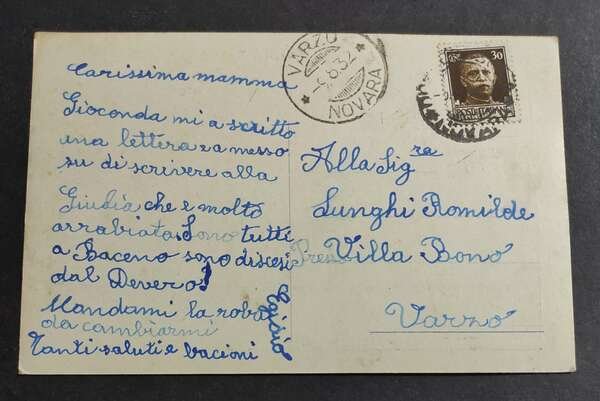 Carissima mamma
Gioconda mi a scritto
una lettera e a messo
su di scrivere alla
Giulia che e molto
arrabiata. Sono tutti
a Baceno sono discesi
dal Devero!
Mandami la roba
da cambiarmi
Tanti saluti e bacioni
Egisio
VARZO
-6.8.32
NOVARA
30
Alla Sig.ra
Lunghi Romilde
Presso Villa Bono
Varzo